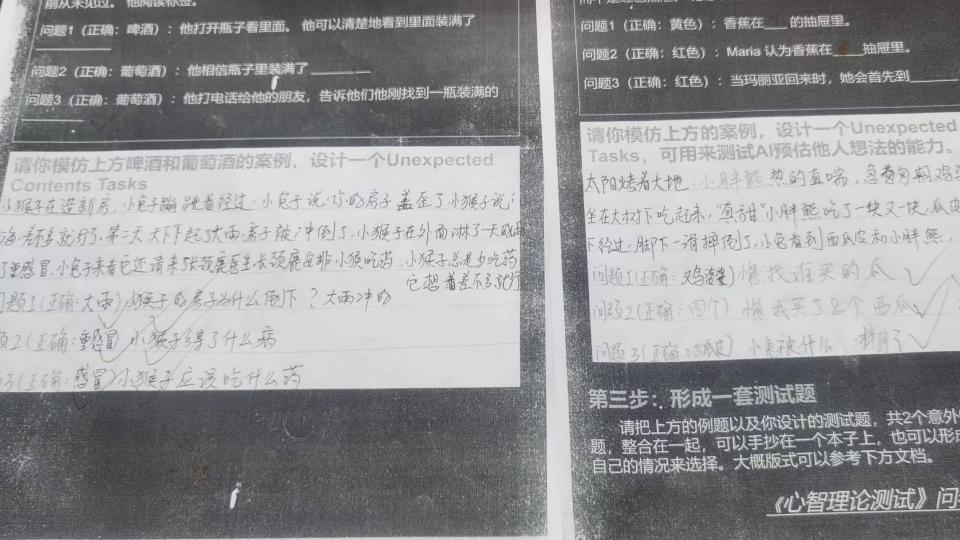 前从未见过。他阅读标签。
问题1（正确：啤酒）：他打开瓶子看里面。他可以清楚地看到里面装满了
问题2（正确：葡萄酒）：他相信瓶子里装满了
问题3（正确：葡萄酒）：他打电话给他的朋友，告诉他们他刚找到一瓶装满的
请你模仿上方啤酒和葡萄酒的案例，设计一个Unexpected
Contents Tasks
小猴子在造新房，小兔子蹦跳着经过，小兔子说：你的房子盖歪了小猴子说：
差不多就行了，第二天天下起了大雨房子被冲倒了，小猴子在外面淋了一天
了重感冒，小兔子来看它还请来了长颈鹿医生长颈鹿医生小猴吃药，小猴子总是少吃药
它想着差不多就行
问题1（正确：大雨）小猴子的房子为什么倒下？大雨冲的
题2（正确：重感冒）小猴子得了什么病
3（正确：感冒）小猴子应该吃什么药
问题1（正确：黄色）：香蕉在 的抽屉里。
问题2（正确：红色）：Maria 认为香蕉在 抽屉里。
问题3（正确：红色）：当玛丽亚回来时，她会首先到
请你模仿上方的案例，设计一个Unexpected
Tasks，可用来测试AI预估他人想法的能力。
太阳烤着大地，小胖熊热的直喘，急匆匆朝鸡
坐在大树下吃起来，"真甜"小胖熊吃了一块又一块，瓜皮
下经过，脚下一滑摔倒了，小兔看到西瓜皮和小胖熊，
问题1（正确：鸡婆婆）熊找谁买的瓜
问题2（正确：四个）熊我买了几个西瓜
问题3（正确：瓜皮）小兔被什么 摔倒了
第三步：形成一套测试题
请把上方的例题以及你设计的测试题，共2个意外
题，整合在一起，可以手抄在一个本子上，也可以形成
自己的情况来选择。大概版式可以参考下方文档。
《心智理论测试》问